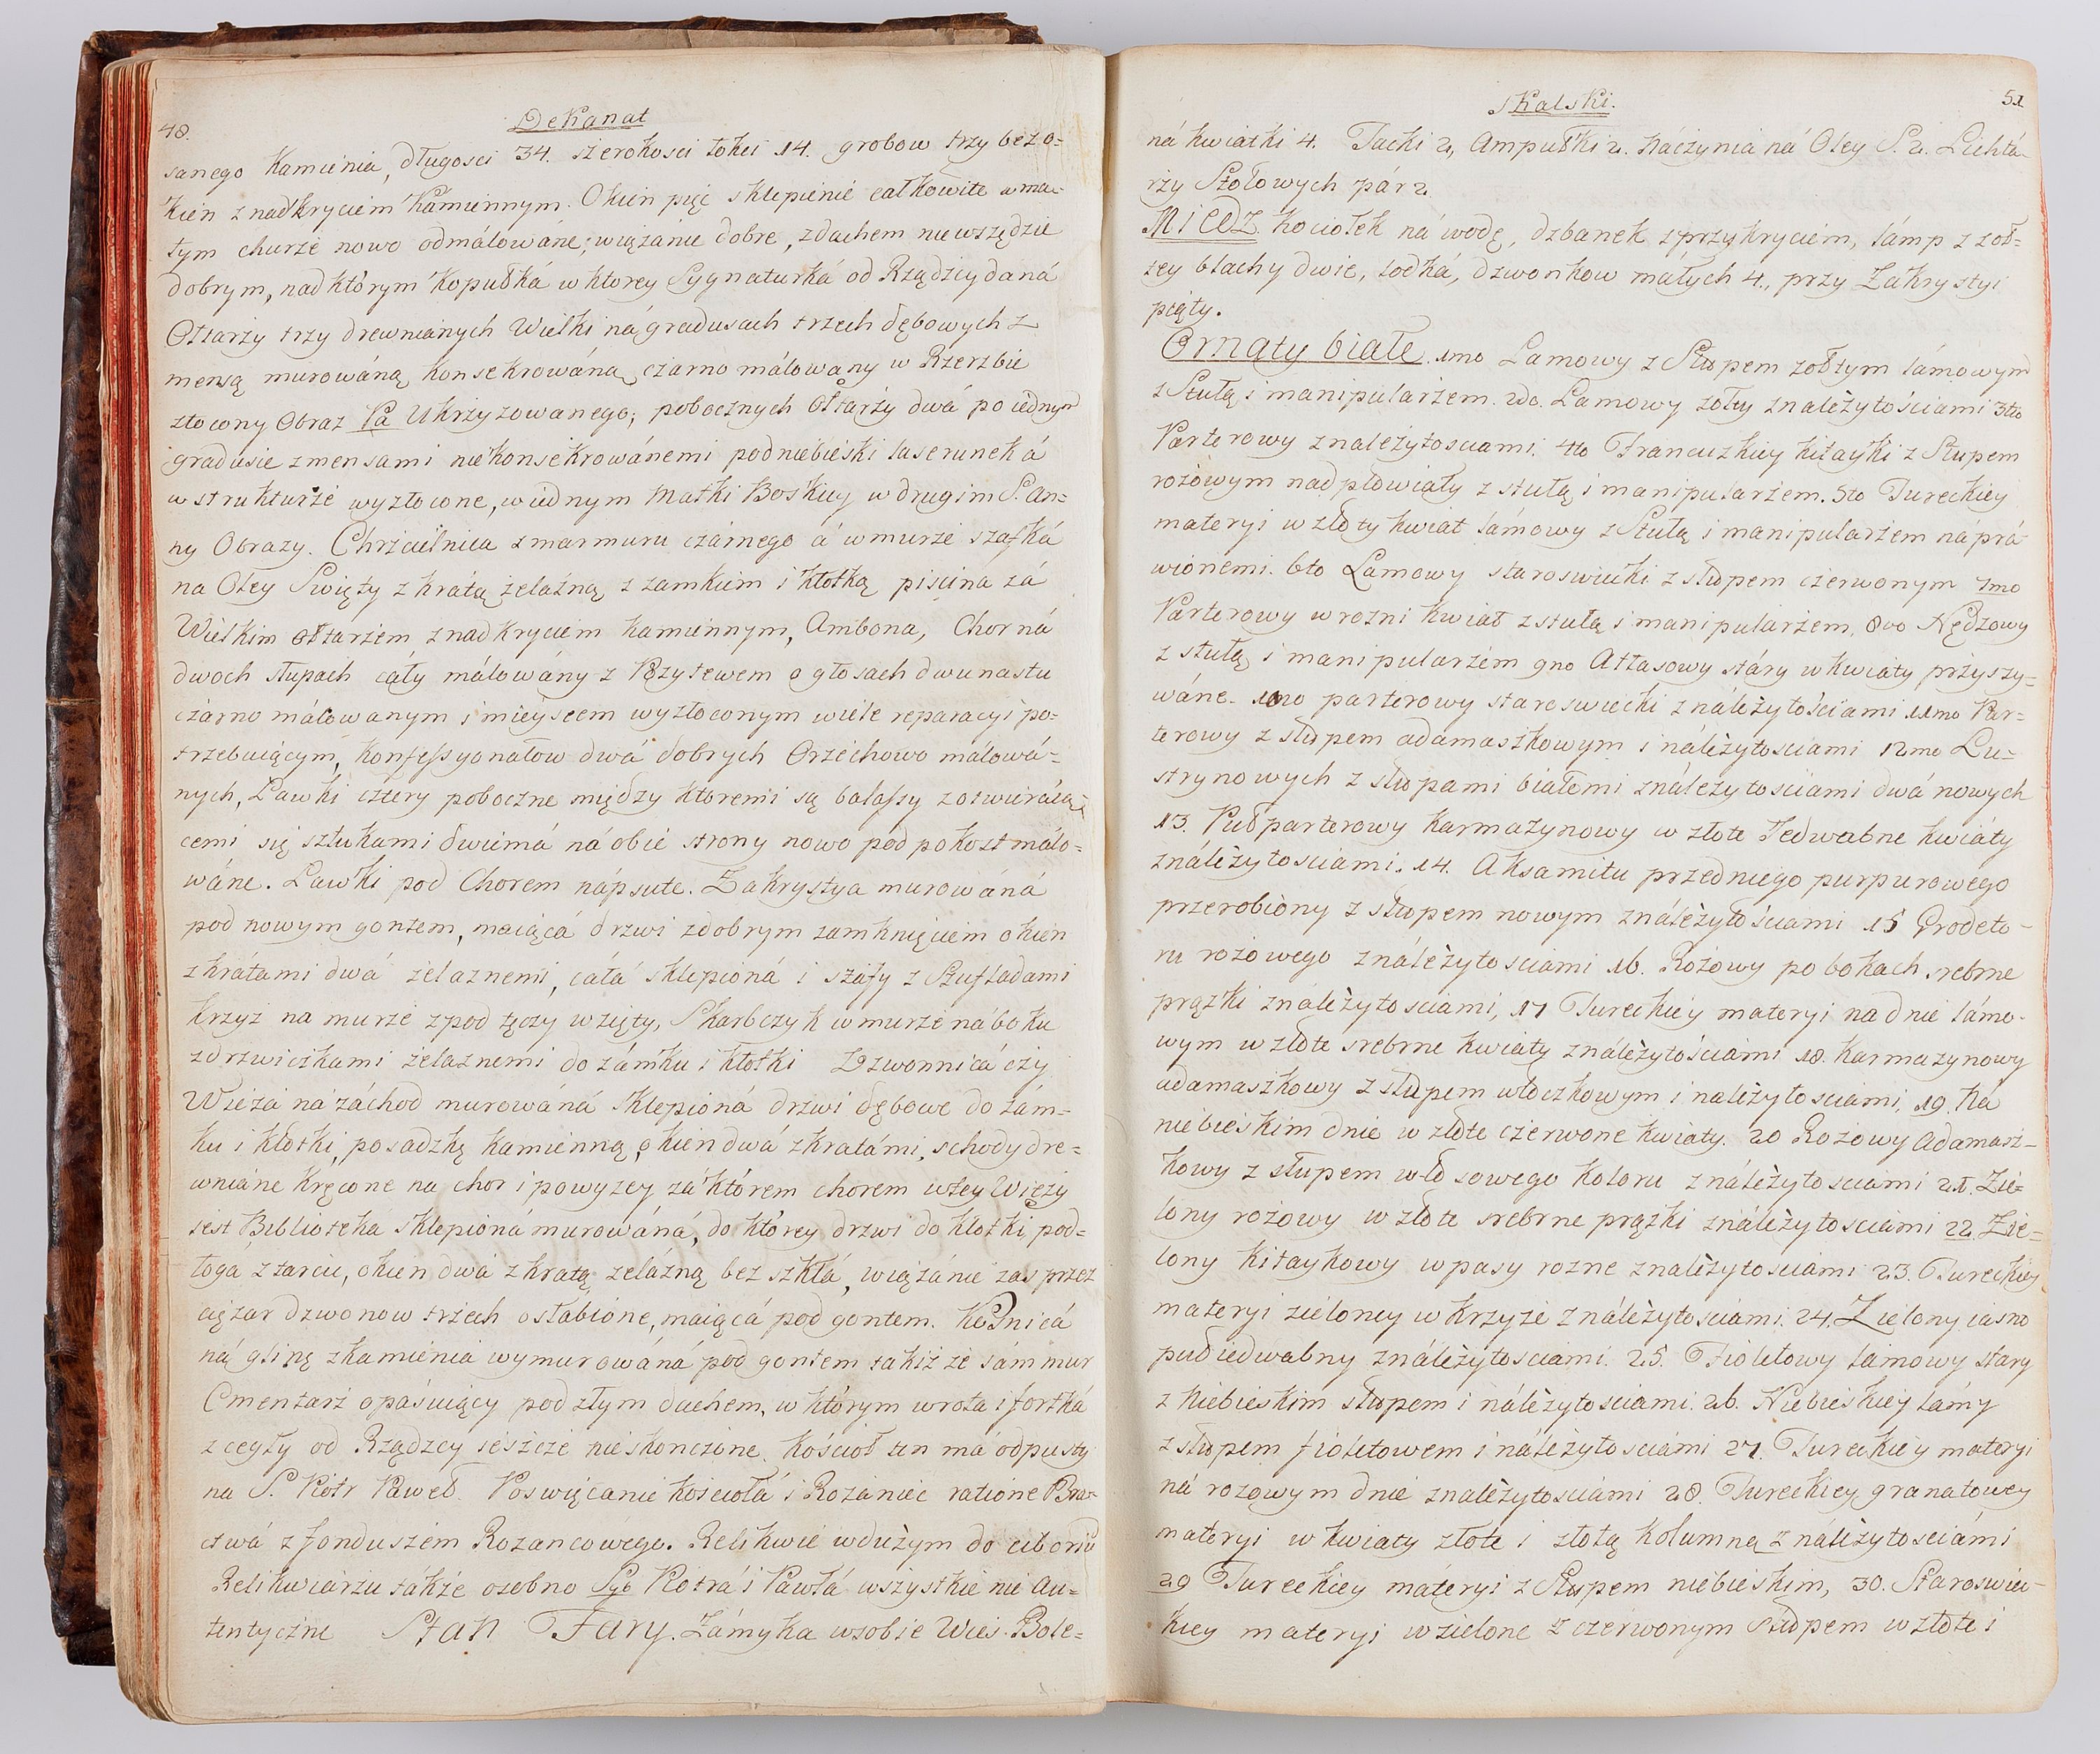 48.
Dekanat
sanego Kamienia, długosci 34. szerokosci łokci 14. grobow trzy bez o=
kien z nadkryciem Kamiennym. Okien pięć sklepienie całkowite a ma=
łym churze nowo odmálowáne; wiązánie dobre, z dachem nie wszędzie
dobrym, nad którym Kopułká w ktorey Sygnaturká od Rządzcy daná
Ołtarzy trzy drewnianych Wielki ná gradusach trzech dębowych z
mensą murowáną konsekrowáną czarno málowány w Rzerzbie
złocony Obraz Pa Ukrzyzowanego; pobocznych Ołtarzy dwá po iednym
gradusie z mensami niekonsekrowánemi podniebieski laserunek á
w strukturze wyzłocone, w iednym Matki Boskiey w drugim S. An=
ny Obrazy. Chrzcielnica z marmuru czárnego á w murze szafká
na Oley Swięty z kratą żelázną z zamkiem i kłotką piscina zá
Wielkim ołtarzem z nadkryciem kamiennym, Ambona, Chor ná
dwoch słupach cáły málowány z Pozytewem o głosach dwunastu
czarno málowanym i mieyscem wyzłoconym wiele reparacyi po=
trzebuiącym, Konfessyonałow dwá dobrych Orzechowo málowá=
nych, Ławki cztery poboczne między ktoremi są balassy z otwieráią=
cemi się sztukami dwiemá ná obie strony nowo pod pokost málo=
wáne. Ławki pod Chorem nápsute. Zakrystya murowáná
pod nowym gontem, maiącá drzwi z dobrym zamknięciem okien
z kratami dwá żelaznemi, cáłá sklepioná i szafy z Szufladami
Krzyż na murze z pod tęczy wzięty, Skarbczyk w murze ná boku
z drzwiczkami żelaznemi do zámku i kłotki Dzwonnicá czy
Wieżá ná záchod murowáná sklepioná drzwi dębowe do zám=
ku i kłotki, posadzkę kamienną, okien dwá z kratámi, schody dre=
wniáne kręcone na chor i powyzey zá którem chorem w tey Wieży
iest Biblioteká sklepioná murowáná, do którey drzwi do kłotki, pod=
łogá z tarcic, okien dwá z kratą żelázną bez szkłá, wiązánie zas przez
ciężar dzwonow trzech osłabione, maiącá pod gontem. Kostnicá
ná glinę z kamienia wymurowáná pod gontem takiż że sám mur
Cmentarz opásuiący pod złym dachem, w którym wrota i fortká
z cegły od Rządzcy ieszcze nieskonczone. Kościoł ten má odpusty
na S. Piotr Paweł. Poswięcanie kościołá i Rozániec ratione Bra=
ctwá z funduszem Rozancowego. Relikwie w dużym do ciboriu
Relikwiarzu tákże osobno Sgo Piotrá i Pawłá wszystkie nie au=
tentyczne Stan Fary. Zámyka w sobie Wieś. Bole=
Skalski.
51
ná kwiatki 4. Tacki 2, Ampułki 2. Náczynia ná Oley S. 2. Lichtá=
rzy Stołowych pár 2
Miedz kociołek ná wodę, dzbanek z przykryciem, lámp z żoł=
tey blachy dwie, łodká, dzwonkow máłych 4., przy Zakrystyi
piąty.
Ornaty białe. 1mo Lamowy z Słupem żołtym lámowym
z Stułą i manipularzem. 2do. Lamowy żołty z należytościami 3tio
Parterowy z należytosciami. 4to Francuzkiey kitayki z Słupem
rożowym nadpłowiały z stułą i manipularzem. 5to Tureckiey
materyi w złoty kwiat lámowy z Stułą i manipularzem náprá=
wionemi. 6to Lamowy staroswiecki z słupem czerwonym 7mo
Parterowy w rożni kwiat z stułą i manipularzem, 8vo Nędzowy
z stułą i manipularzem 9no Atłasowy stáry w kwiáty przyszy=
wáne. 10mo parterowy staroswiecki z náleżytościami 11mo Par=
terowy z słupem adamaszkowym i náleżytosciami 12mo Lu=
strynowych z słupami białemi z náleżytosciami dwá nowych
13. Pułparterowy karmazynowy w złote Jedwabne kwiáty
z náleżytosciami. 14. Aksamitu przedniego purpurowego
przerobiony z słupem nowym z náleżytościami 15 Grodeto=
ru rożowego z náleżytosciami 16. Rożowy po bokach srebrne
prązki z náleżytosciami, 17 Tureckiey materyi na dnie lámo=
wym w złote srebrne kwiaty z náleżytościami 18. Karmazynowy
adamaszkowy z słupem włoczkowym i należytosciami, 19. Ná
niebieskim dnie w złote czerwone kwiaty. 20 Rożowy Adamasz=
kowy z słupem włosowego koloru z náleżytosciami 21. Zie=
lony rożowy w złote srebrne prązki z náleżytosciami 22. Zie=
lony kitaykowy w pasy rozne z należytosciámi 23. Tureckiey
materyi zieloney w krzyże z náleżytosciámi. 24. Zielony iasno
pułiedwabny z náleżytosciami. 25. Fioletowy lámowy stary
z Niebieskim słupem i náleżytosciami. 26. Niebieskiey lámy
z słupem fioletowem i náleżytosciámi 27. Tureckiey materyi
ná rozowym dnie z należytosciámi 28. Tureckiey granatowey
materyi w kwiaty złote i złotą kolumną z náleżytosciámi
29 Tureckiey máteryi z Słupem niebieskim, 30. Staroswiec=
kiey materyi w zielone z czerwonym Słupem w złote i